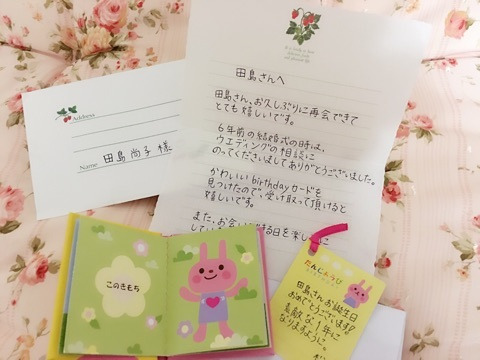 Address
Name 田島尚子様
田島さんへ
田島さん、お久しぶりに再会できて
とても嬉しいです。
6年前の結婚式の時は、
ウエディングの相談に
のってくださいましてありがとうございました。
かわいいbirthdayカードを
見つけたので、受け取って頂けると
嬉しいです。
また、お会いできる日を楽しみに
して
このきもち
たんじょうび
田島さんお誕生日
おめでとうございます!
素敵な1年に
なりますように。